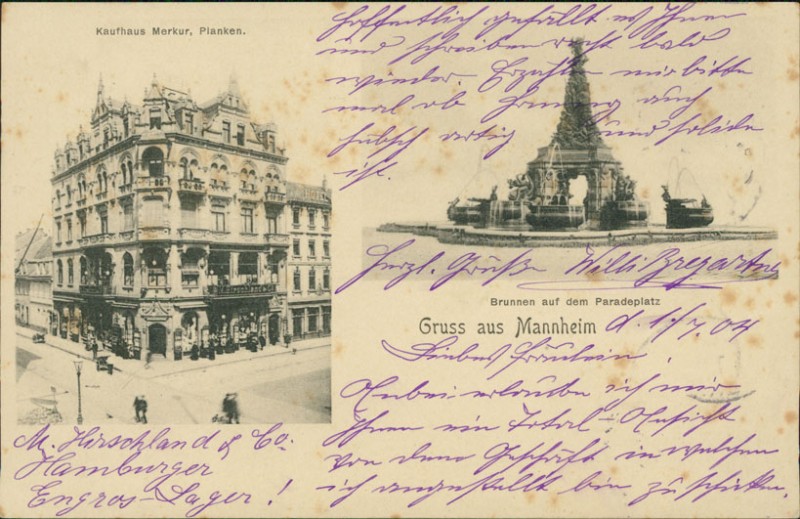 Kaufhaus Merkur, Planken.
Hoffentlich gefällt es Ihnen
und schreiben recht bald
wieder. Erzählen mir bitte
mal ob Henny auch
hübsch artig und solide
ist.
Herzl. Grüße Willi
Brunnen auf dem Paradeplatz
Gruss aus Mannheim d. 1/7.04
Liebes Fräulein!
Anbei erlaube ich mir
Ihnen ein Total-Ansicht
von dem Geschäft in welchem
ich angestellt bin zu schicken.
M. Hirschland & Co:
Hamburger
Engros-Lager!